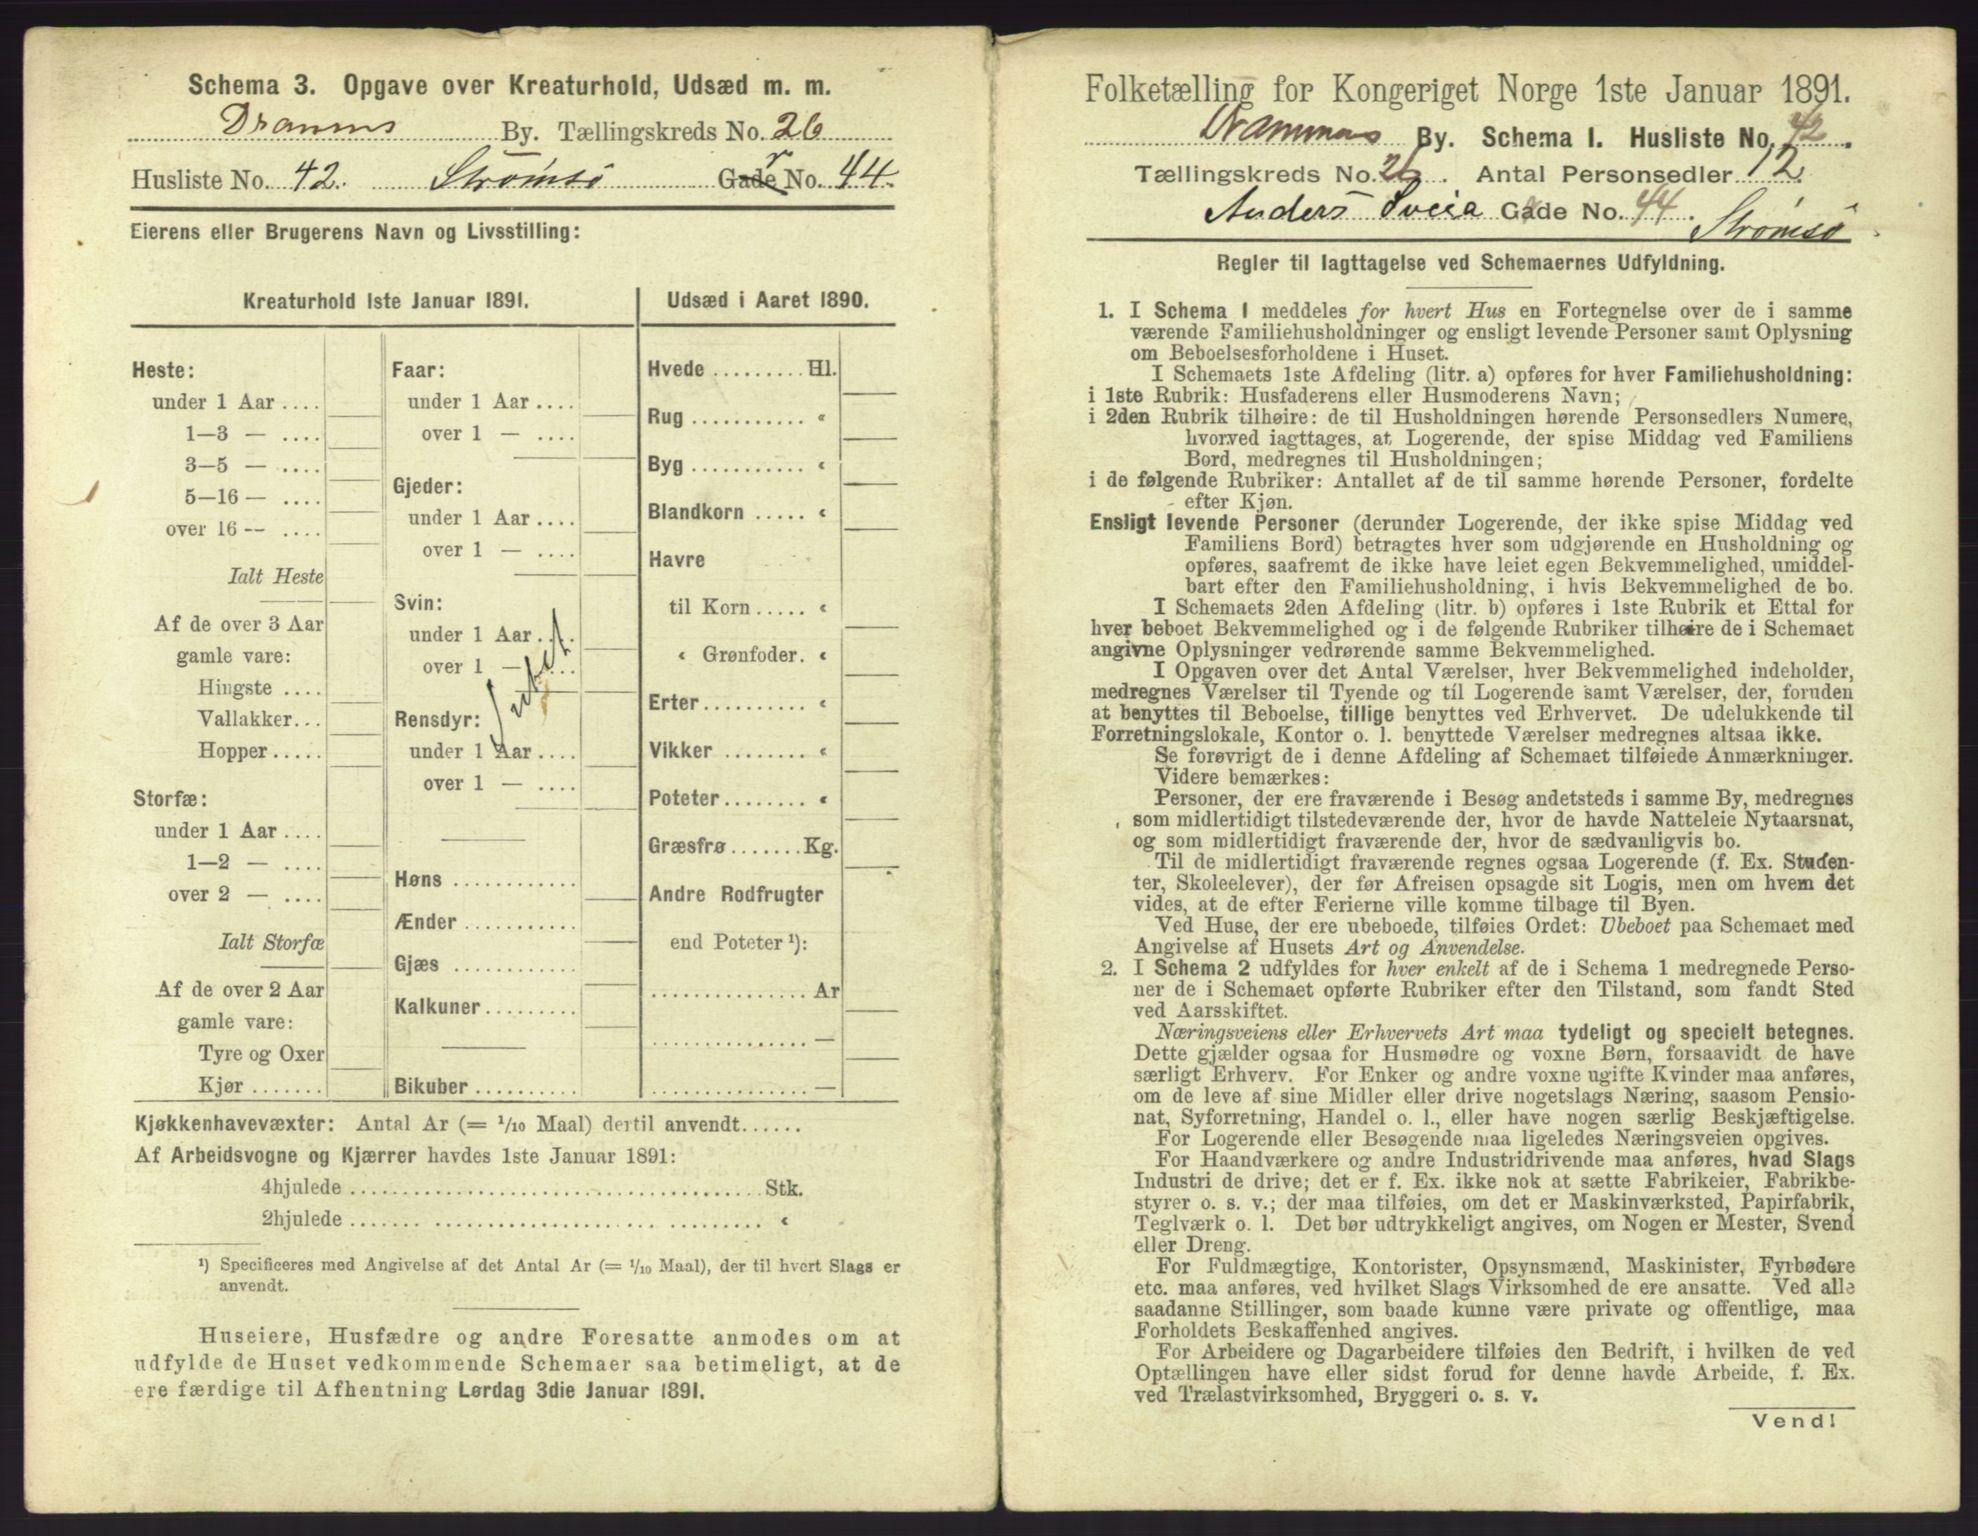 Schema 3. Opgave over Kreaturhold, Udsæd m. m.
Dramms By. Tællingskreds No. 26
Husliste No. 42. Strömsö Gade No. 44.
Eierens eller Brugerens Navn og Livsstilling:
Kreaturhold 1ste Januar 1891.
Heste:
under 1 Aar ....
1—3 — ....
3—5 — ....
5—16 — ....
over 16 — ....
Ialt Heste
Af de over 3 Aar
gamle vare:
Hingste ....
Vallakker...
Hopper.....
Storfæ:
under 1 Aar ....
1—2 — ....
over 2 — ....
Ialt Storfæ
Af de over 2 Aar
gamle vare:
Tyre og Oxer
Kjør .......
Faar:
under 1 Aar ....
over 1 — ....
Gjeder:
under 1 Aar....
over 1 — ....
Svin:
under 1 Aar....
over 1 — ....
Rensdyr:
under 1 Aar....
over 1 — ....
Intet
Høns ............
Ænder ...........
Gjæs ............
Kalkuner.........
Bikuber..........
Udsæd i Aaret 1890.
Hvede ......... Hl.
Rug ........... «
Byg ........... «
Blandkorn ..... «
Havre
til Korn..... «
« Grønfoder. «
Erter.......... «
Vikker ........ «
Poteter........ «
Græsfrø.......Kg.
Andre Rodfrugter
end Poteter ¹):
............... Ar
............... —
............... —
Kjøkkenhavevæxter: Antal Ar (= 1/10 Maal) dertil anvendt......
Af Arbeidsvogne og Kjærrer havdes 1ste Januar 1891:
4hjulede ........................................ Stk.
2hjulede ........................................ «
¹) Specificeres med Angivelse af det Antal Ar (= 1/10 Maal), der til hvert Slags er
anvendt.
Huseiere, Husfædre og andre Foresatte anmodes om at
udfylde de Huset vedkommende Schemaer saa betimeligt, at de
ere færdige til Afhentning Lørdag 3die Januar 1891.
Folketælling for Kongeriget Norge 1ste Januar 1891.
Drammens By. Schema I. Husliste No. 42.
Tællingskreds No. 26. Antal Personsedler 12.
Anders Sveia Gade No. 44. Strömsö
Regler til Iagttagelse ved Schemaernes Udfyldning.
1. I Schema 1 meddeles for hvert Hus en Fortegnelse over de i samme
værende Familiehusholdninger og ensligt levende Personer samt Oplysning
om Beboelsesforholdene i Huset.
I Schemaets 1ste Afdeling (litr. a) opføres for hver Familiehusholdning:
i 1ste Rubrik: Husfaderens eller Husmoderens Navn;
i 2den Rubrik tilhøire: de til Husholdningen hørende Personsedlers Numere,
hvorved iagttages, at Logerende, der spise Middag ved Familiens
Bord, medregnes til Husholdningen;
i de følgende Rubriker: Antallet af de til samme hørende Personer, fordelte
efter Kjøn.
Ensligt levende Personer (derunder Logerende, der ikke spise Middag ved
Familiens Bord) betragtes hver som udgjørende en Husholdning og
opføres, saafremt de ikke have leiet egen Bekvemmelighed, umiddel-
bart efter den Familiehusholdning, i hvis Bekvemmelighed de bo.
I Schemaets 2den Afdeling (litr. b) opføres i 1ste Rubrik et Ettal for
hver beboet Bekvemmelighed og i de følgende Rubriker tilhøire de i Schemaet
angivne Oplysninger vedrørende samme Bekvemmelighed.
I Opgaven over det Antal Værelser, hver Bekvemmelighed indeholder,
medregnes Værelser til Tyende og til Logerende samt Værelser, der, foruden
at benyttes til Beboelse, tillige benyttes ved Erhvervet. De udelukkende til
Forretningslokale, Kontor o. l. benyttede Værelser medregnes altsaa ikke.
Se forøvrigt de i denne Afdeling af Schemaet tilføiede Anmærkninger.
Videre bemærkes:
Personer, der ere fraværende i Besøg andetsteds i samme By, medregnes
som midlertidigt tilstedeværende der, hvor de havde Natteleie Nytaarsnat,
og som midlertidigt fraværende der, hvor de sædvanligvis bo.
Til de midlertidigt fraværende regnes ogsaa Logerende (f. Ex. Studen-
ter, Skoleelever), der før Afreisen opsagde sit Logis, men om hvem det
vides, at de efter Ferierne ville komme tilbage til Byen.
Ved Huse, der ere ubeboede, tilføies Ordet: Ubeboet paa Schemaet med
Angivelse af Husets Art og Anvendelse.
2. I Schema 2 udfyldes for hver enkelt af de i Schema 1 medregnede Perso-
ner de i Schemaet opførte Rubriker efter den Tilstand, som fandt Sted
ved Aarsskiftet.
Næringsveiens eller Erhvervets Art maa tydeligt og specielt betegnes.
Dette gjælder ogsaa for Husmødre og voxne Børn, forsaavidt de have
særligt Erhverv. For Enker og andre voxne ugifte Kvinder maa anføres,
om de leve af sine Midler eller drive nogetslags Næring, saasom Pensio-
nat, Syforretning, Handel o. l., eller have nogen særlig Beskjæftigelse.
For Logerende eller Besøgende maa ligeledes Næringsveien opgives.
For Haandværkere og andre Industridrivende maa anføres, hvad Slags
Industri de drive; det er f. Ex. ikke nok at sætte Fabrikeier, Fabrikbe-
styrer o. s. v.; der maa tilføies, om det er Maskinværksted, Papirfabrik,
Teglværk o. l. Det bør udtrykkeligt angives, om Nogen er Mester, Svend
eller Dreng.
For Fuldmægtige, Kontorister, Opsynsmænd, Maskinister, Fyrbødere
etc. maa anføres, ved hvilket Slags Virksomhed de ere ansatte. Ved alle
saadanne Stillinger, som baade kunne være private og offentlige, maa
Forholdets Beskaffenhed angives.
For Arbeidere og Dagarbeidere tilføies den Bedrift, i hvilken de ved
Optællingen have eller sidst forud for denne havde Arbeide, f. Ex.
ved Trælastvirksomhed, Bryggeri o. s. v.
Vend!